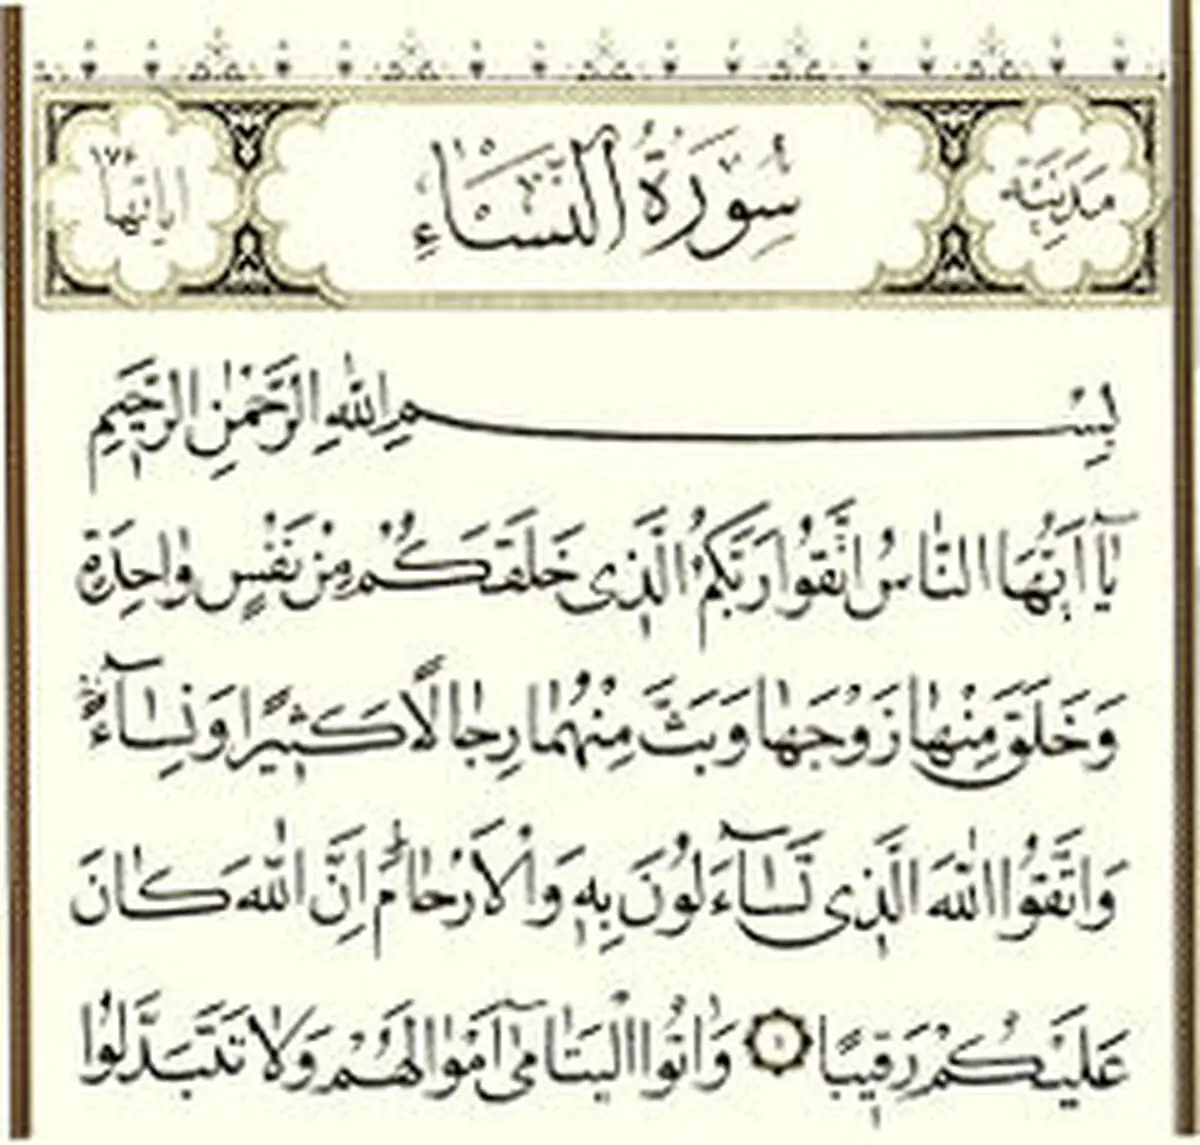 مَدَنِيَّة
سُورَةُ النِّسَاءِ
اياتها ١٧۶
بِسْمِ اللّٰهِ الرَّحْمٰنِ الرَّحيمِ
يٰٓا اَيُّهَا النّٰاسُ اتَّقُوا رَبَّكُمُ الَّذِی خَلَقَكُمْ مِنْ نَفْسٍ وٰاحِدَةٍ
وَخَلَقَ مِنْهٰا زَوْجَهٰا وَبَثَّ مِنْهُمٰا رِجٰالًا كَثيرًا وَنِسٰآءً
وَاتَّقُوا اللّٰهَ الَّذی تَسٰآءَلُونَ بِهِ وَالْاَرْحٰامَ اِنَّ اللّٰهَ كٰانَ
عَلَيْكُمْ رَقيبًا ١ وَاٰتُوا الْيَتٰامىٰٓ اَمْوٰالَهُمْ وَلٰا تَتَبَدَّلُوا